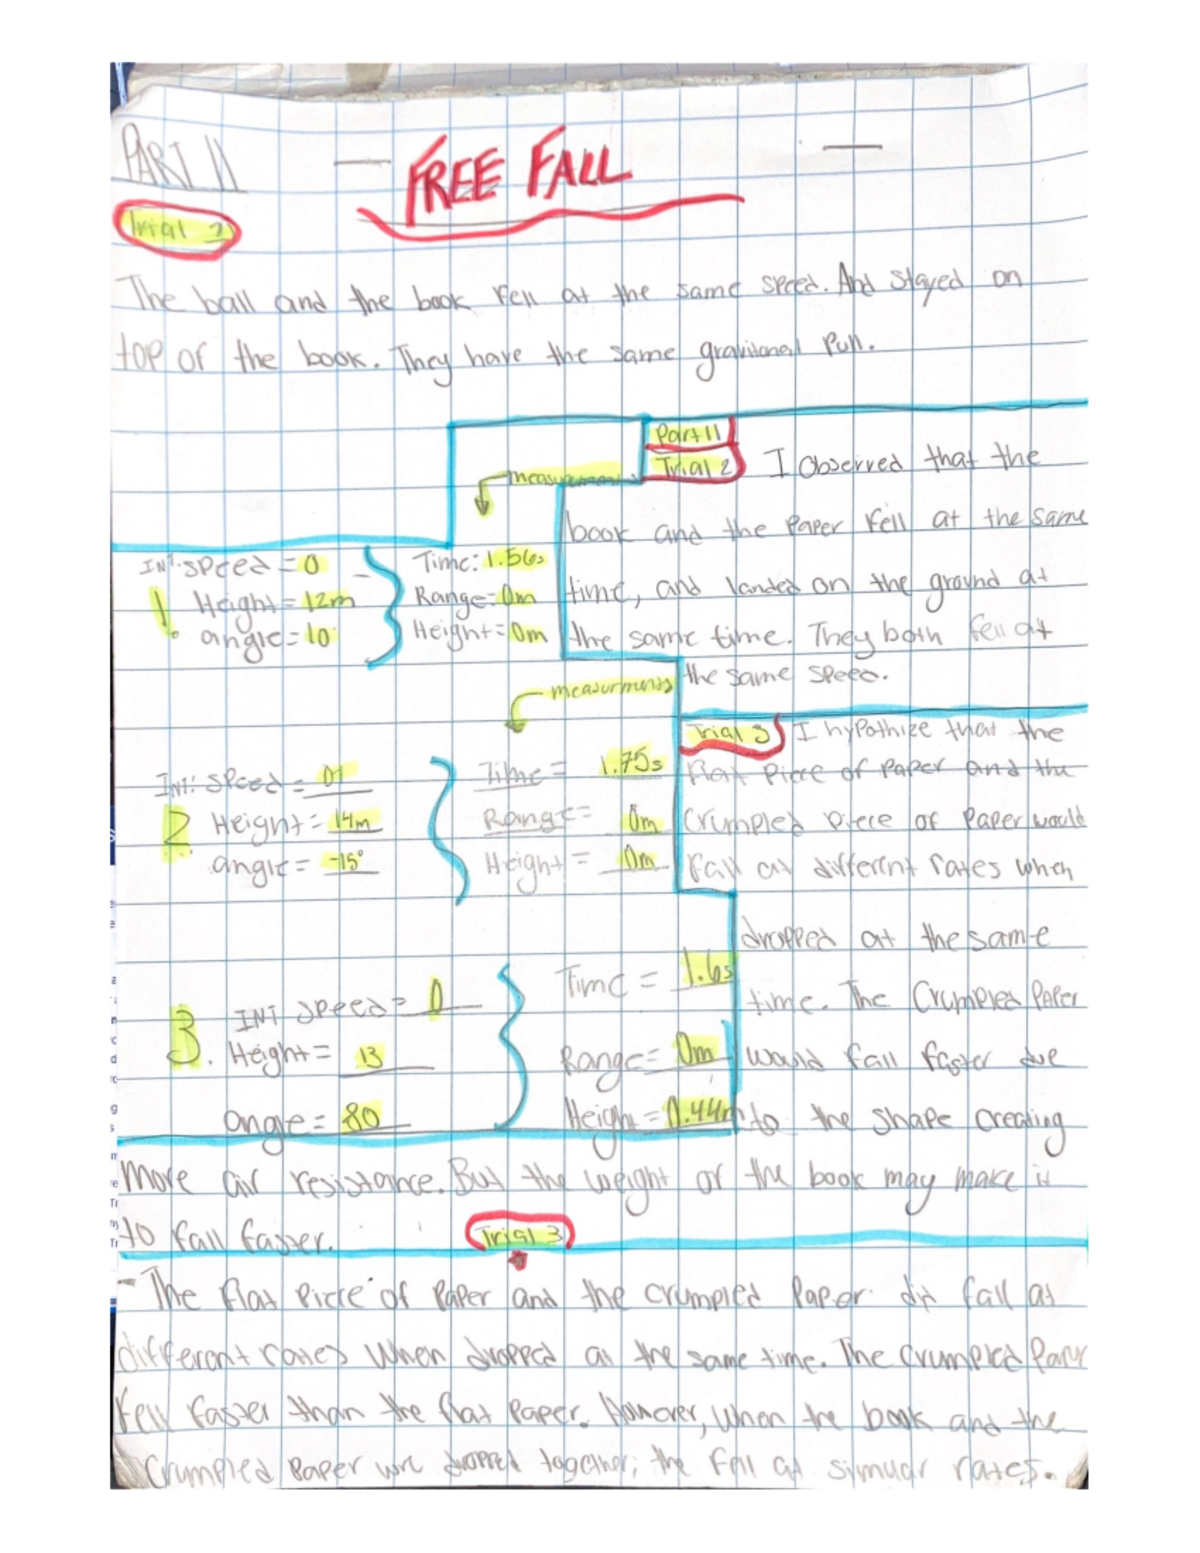 PART II
FREE FALL
Trial 1
The ball and the book fell at the same speed. And stayed on
top of the book. They have the same gravitional Pull.
Part II
Trial 2
measurements
I observed that the
book and the paper fell at the same
time, and landed on the ground at
the same time. They both fell at
the same speed.
1. INT. speed = 0
Height = 12m
angle = 10
Time: 1.56s
Range = 0m
Height = 0m
measurments
2. Int: speed =
Height = 14m
angle = -15°
Time = 1.75s
Range = 0m
Height = 0m
3. INT speed = 0
Height = 13
angle = 80
Time = 1.6s
Range = 0m
Height = 0.44m
Trial 3 I hypothize that the
flat piece of paper and the
crumpled piece of paper would
fall at different rates when
dropped at the same
time. The crumpled paper
would fall faster due
to the shape creating
more air resistance. But the weight of the book may make it
to fall faster.
Trial 3
- The flat piece of paper and the crumpled paper did fall at
different rates when dropped at the same time. The crumpled paper
fell faster than the flat paper. However, when the book and the
crumpled paper wre dropped together, the fell at simular rates.